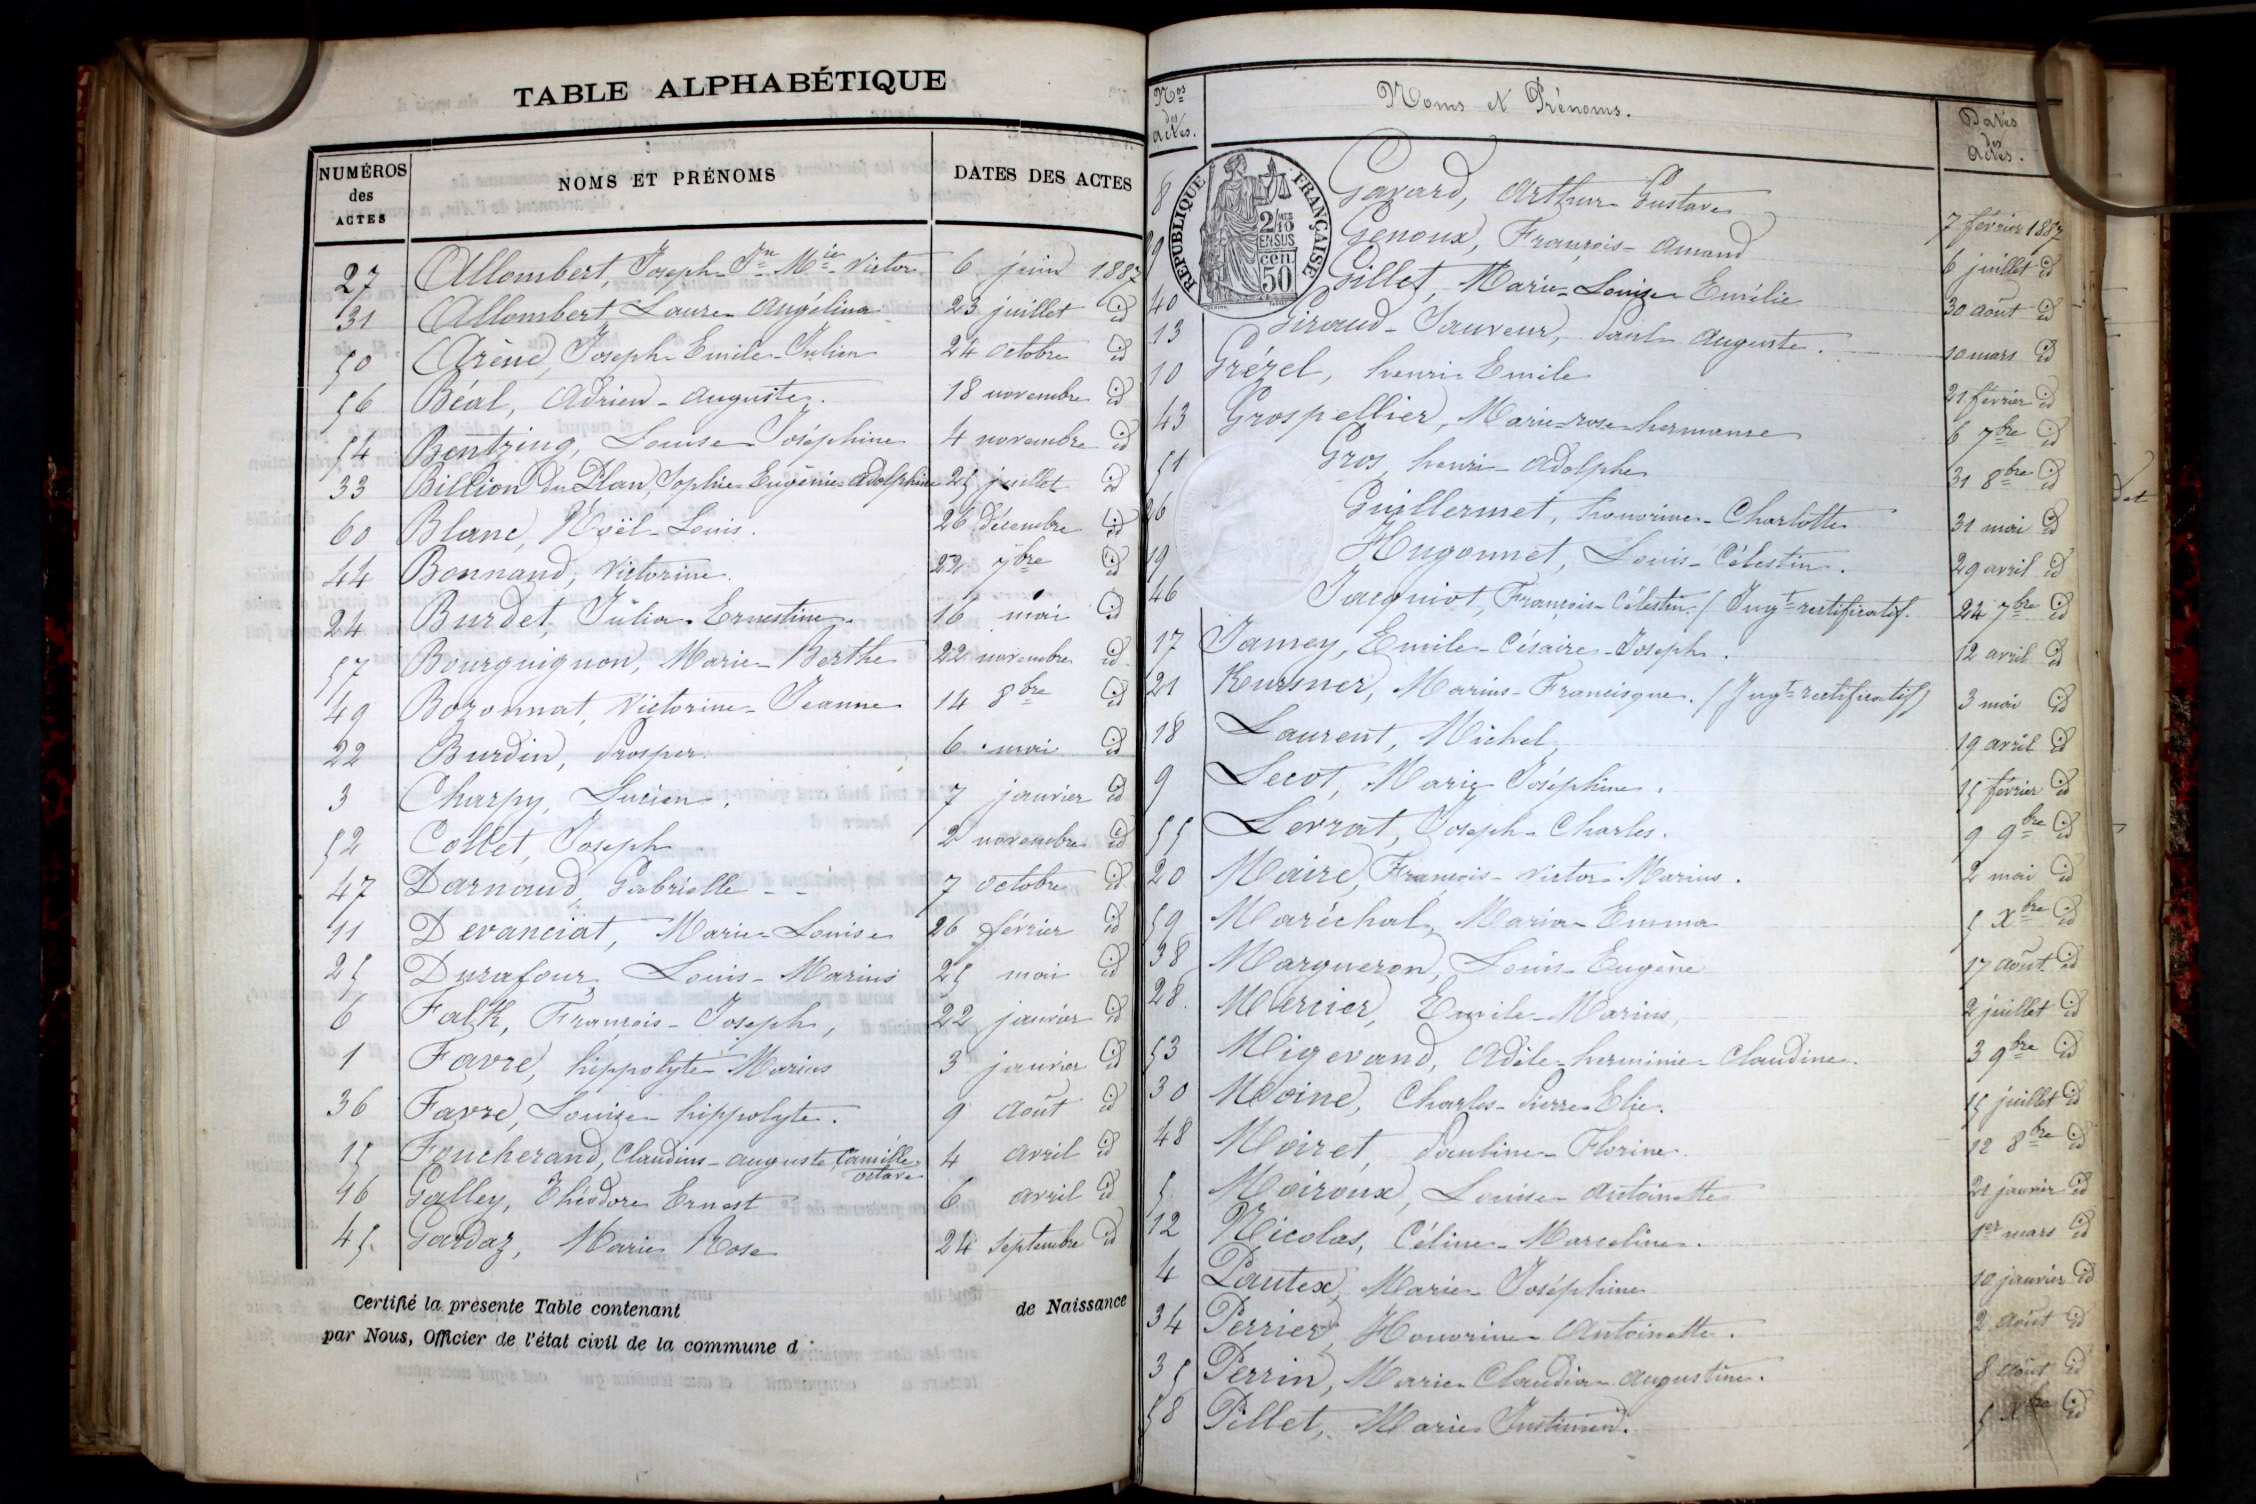 TABLE ALPHABÉTIQUE
NUMÉROS des ACTES NOMS ET PRÉNOMS DATES DES ACTES
27 Allombert, Joseph Jn Mie Victor 6 juin 1887
31 Allombert Laure Angélina 23 juillet id
50 Arène, Joseph Emile Julien 24 octobre id
56 Béal, Adrien - Auguste. 18 novembre id
54 Bentzing, Louise Joséphine 4 novembre id
33 Billion du Plan, Sophie Eugénie Adolphine 25 juillet id
60 Blanc, Noël - Louis. 26 décembre id
44 Bonnand, Victorine. 22 7bre id
24 Burdet, Julia - Ernestine. 16 mai id
57 Bourguignon, Marie - Berthe 22 novembre id
49 Bozonnat, Victorine - Jeanne 14 8bre id
22 Burdin, Prosper. 6 mai id
3 Charpy, Lucien. 7 janvier id
52 Collet, Joseph 2 novembre id
47 Darnaud, Gabrielle - - 7 octobre id
11 Devanciat, Marie - Louise 26 février id
25 Durafour, Louis - Marius 25 mai id
6 Falk, François - Joseph, 22 janvier id
1 Favre, hippolyte Marius 3 janvier id
36 Favre, Louise - hippolyte. 9 Août id
15 Foucherand, Claudius - auguste, Camille 4 avril id
octave
16 Galley, Théodore Ernest 6 avril id
45 Gardaz, Marie Rose 24 septembre id
Certifié la présente Table contenant de Naissance
par Nous, Officier de l'état civil de la commune d
Nos des actes. Noms et Prénoms. Dates des Actes.
RÉPUBLIQUE FRANÇAISE
2/10 EN SUS
50 cen
8 Gavard, Arthur Gustave 7 février 1887
29 Genoux, François - Amand 6 juillet id
40 Gillet, Marie - Louise Emélie 30 août id
13 Giraud - Sauveur, Paul - Auguste. 10 mars id
10 Grézel, henri Emile 21 février id
43 Grospellier, Marie - rose - hermance 6 7bre id
51 Gros, henri - Adolphe 31 8bre id
26 Guillermet, honorine - Charlotte 31 mai id
19 Hugonnet, Louis - Célestin. 29 avril id
46 Jacquiot, François - Célestin. (Jugt rectificatif. 24 7bre id
17 Jamey, Emile - Césaire - Joseph. 12 avril id
21 Kursner, Marius - Francisque. (Jugt rectificatif) 3 mai id
18 Laurent, Michel 19 avril id
9 Lecot, Marie Joséphine. 15 février id
55 Levrat, Joseph - Charles. 9 9bre id
20 Maire, François - Victor - Marius. 2 mai id
59 Maréchal, Maria - Emma 5 Xbre id
38 Margueron, Louis - Eugène 17 août id
28. Mercier, Emile - Marius, 2 juillet id
53 Migevand, Adèle - herminie - Claudine 3 9bre id
30 Moine, Charles - Pierre - Elie. 15 juillet id
48 Moiret, Pauline - Florine. 12 8bre id
5 Moiroux, Louise - Antoinette 21 janvier id
12 Nicolas, Céline - Marceline. 1er mars id
4 Pautex, Marie - Joséphine 10 janvier id
34 Perrier, Honorine Antoinette. 2 août id
35 Perrin, Marie - Claudia - Augustine. 8 août id
58 Pillet, Marie 5 Xbre id